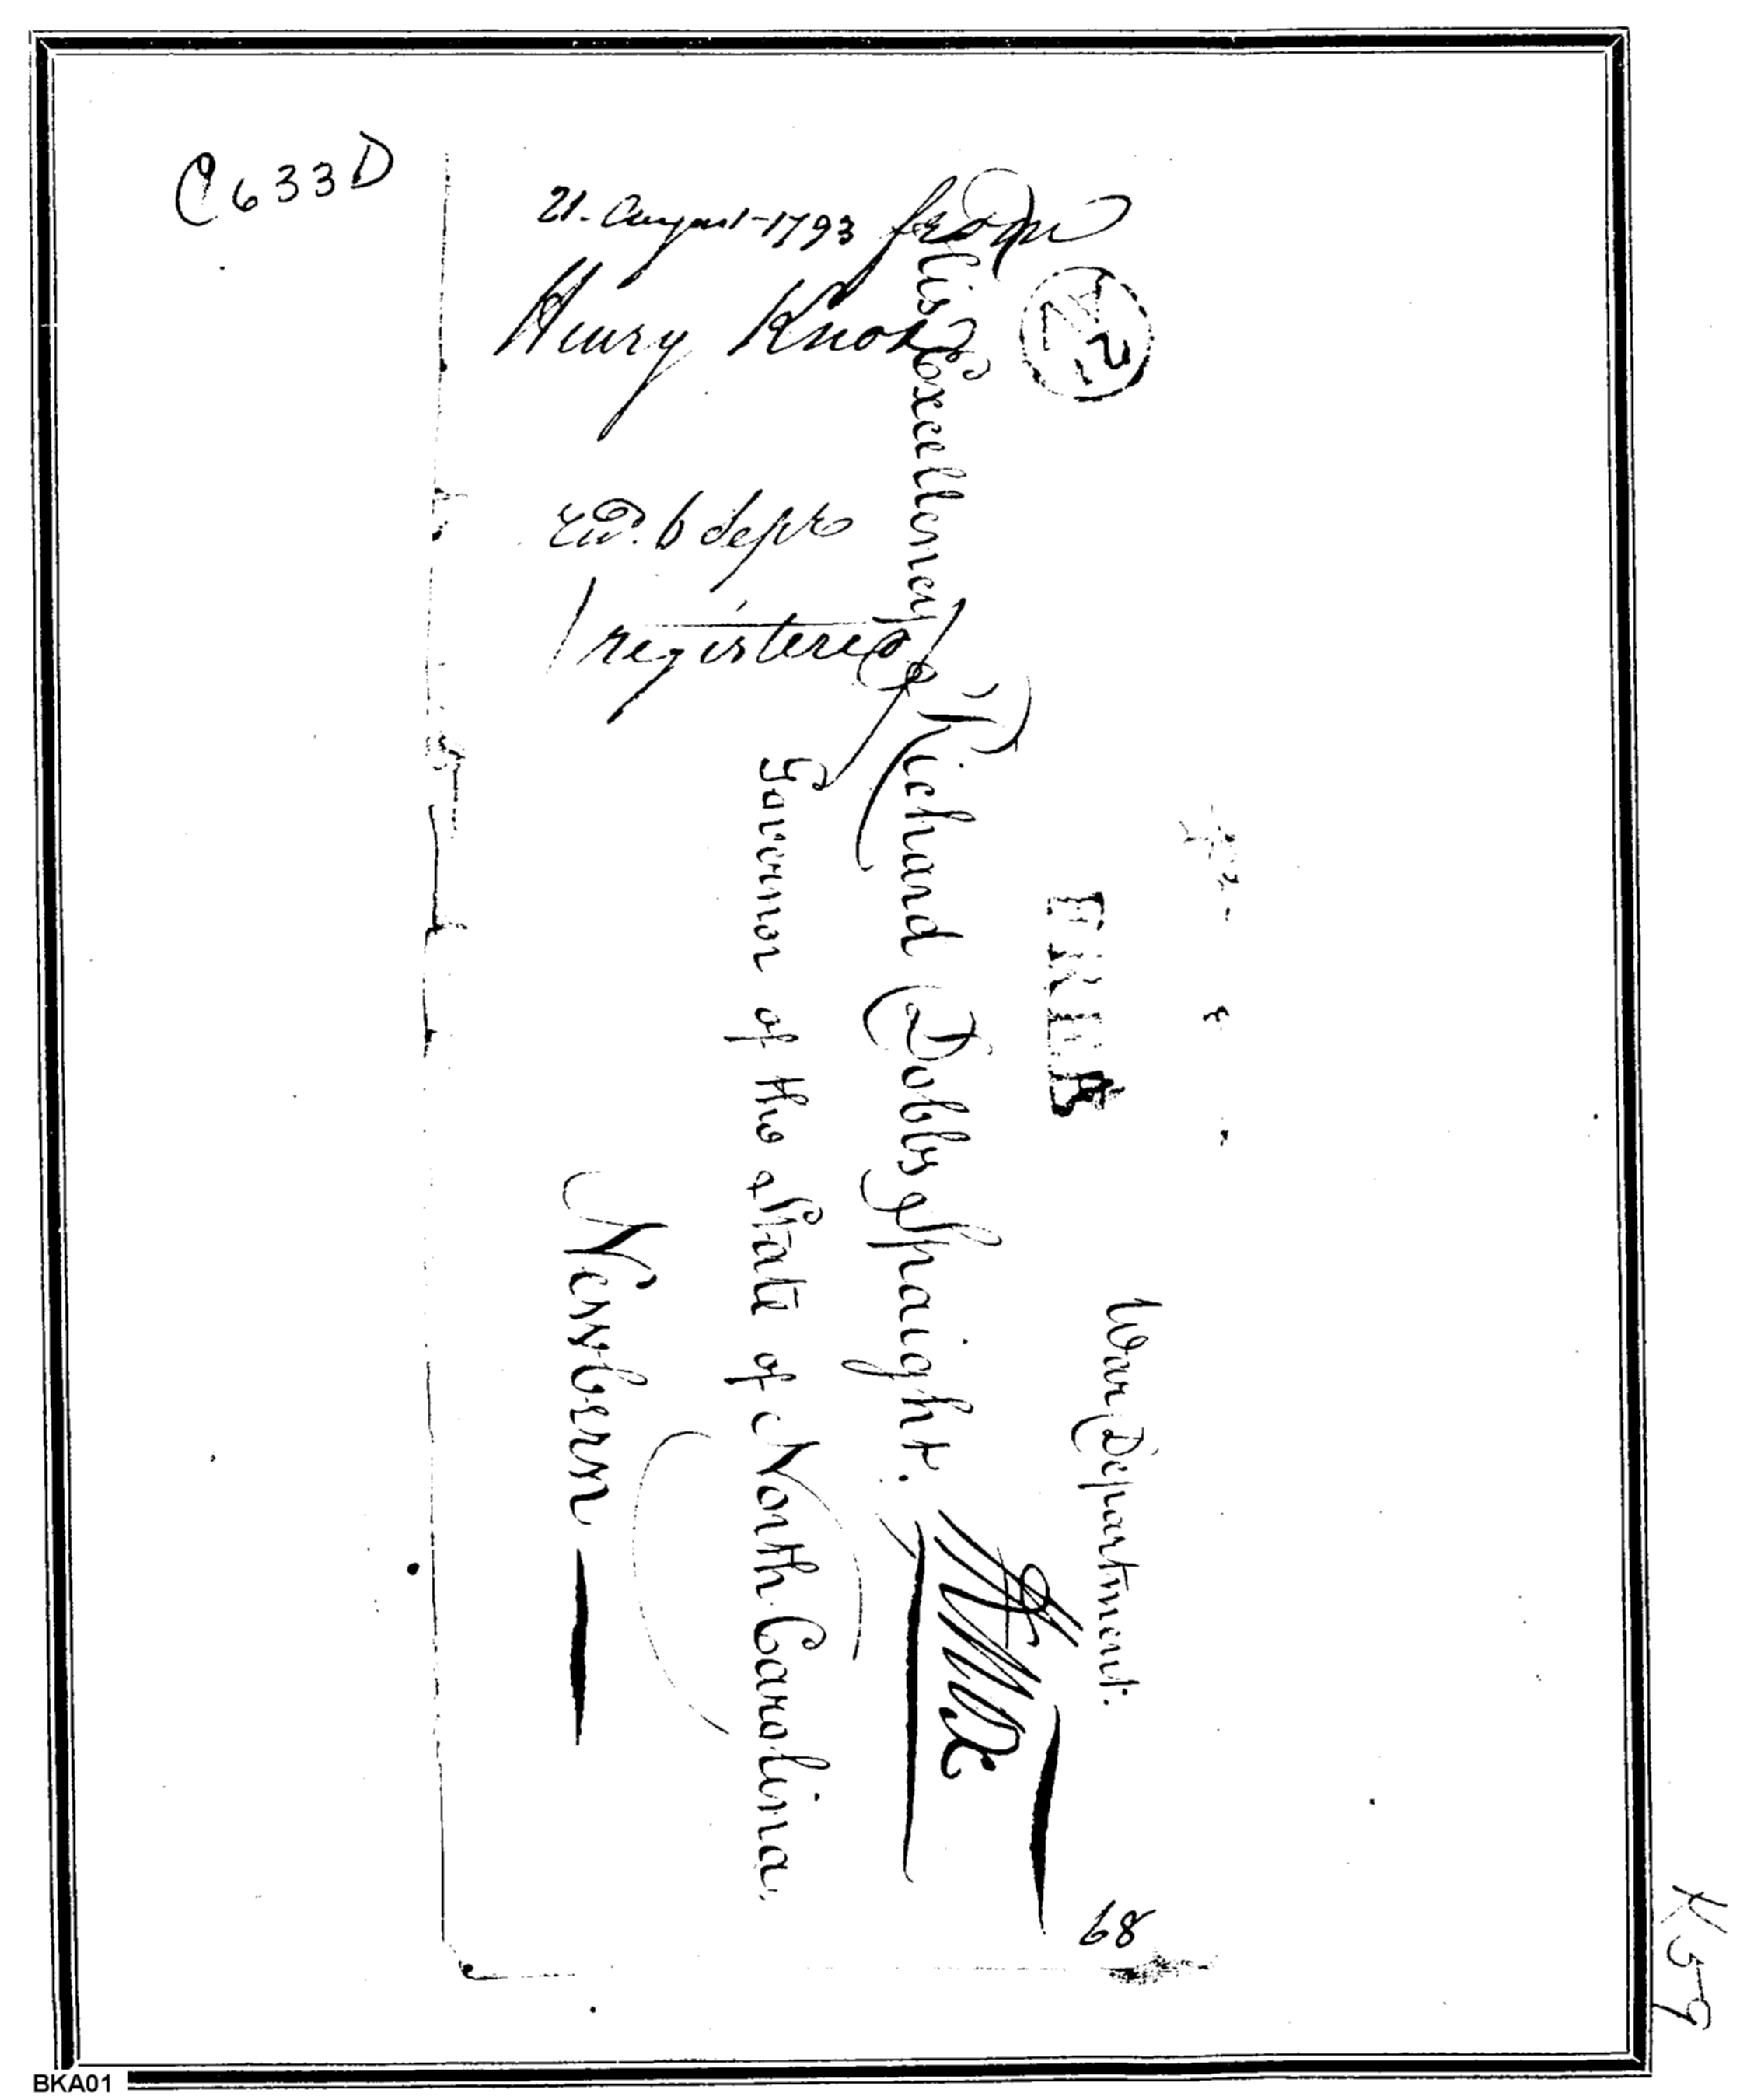 C633D
21. August 1793 from
Henry Knox
recd. 6 Sepr
/registered/
FREE
War Department.
His Excellency
Richard Dobbs Spaight.
Governor of the State of North Carolina.
Newbern
68
K59
BKA01